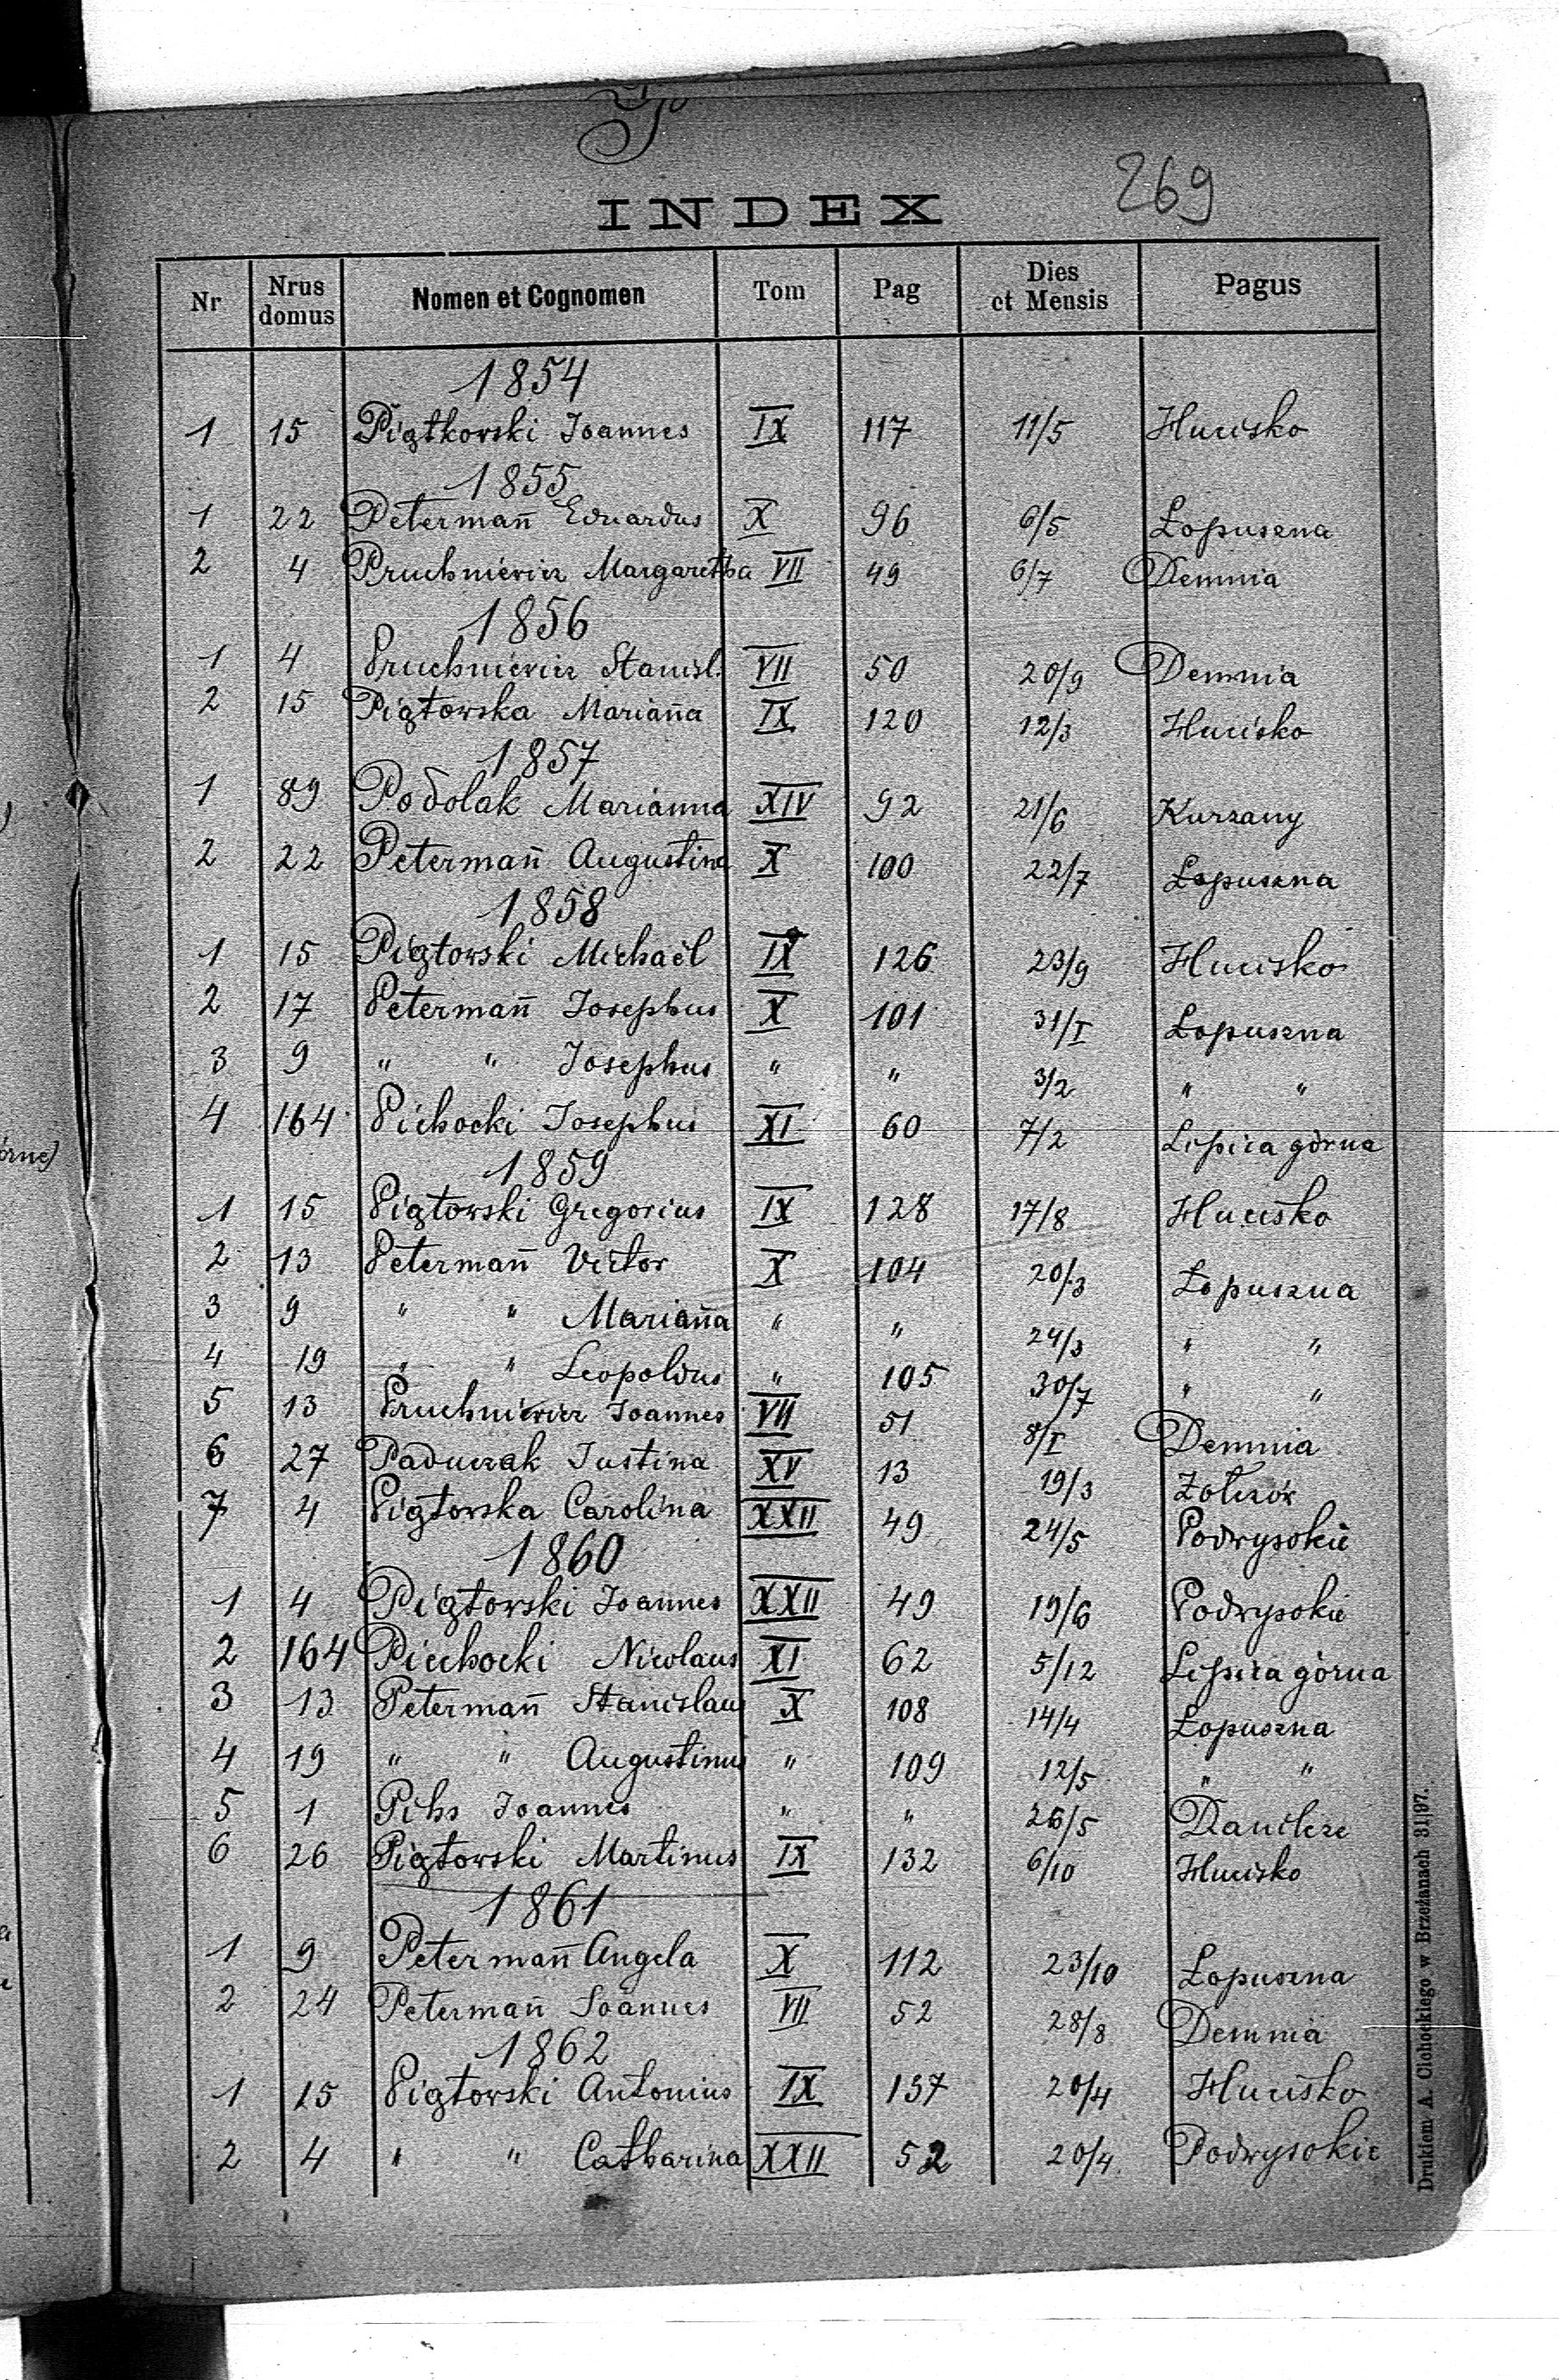 P
269
INDEX
Nr Nrus domus Nomen et Cognomen Tom Pag Dies et Mensis Pagus
1854
1 15 Piątkowski Joannes IX 117 11/5 Hucisko
1855
1 22 Petermañ Eduardus X 96 6/5 Łopuszna
2 4 Pruchniewicz Margaretha VII 49 6/7 Demnia
1856
1 4 Pruchniewicz Stanisl. VII 50 20/9 Demnia
2 15 Piątowska Mariaña IX 120 12/3 Hucisko
1857
1 89 Podolak Marianna XIV 92 21/6 Kurzany
2 22 Petermañ Augustina X 100 22/7 Łopuszna
1858
1 15 Piątowski Michaël IX 126 23/9 Hucisko
2 17 Petermañ Josephus X 101 31/I Łopuszna
3 9 " " Josephus " " 3/2 " "
4 164 Pichocki Josephus XI 60 7/2 Lipica górna
1859
1 15 Piątowski Gregorius IX 128 17/8 Hucisko
2 13 Petermañ Victor X 104 20/3 Łopuszna
3 9 " " Mariaña " " 24/3 " "
4 19 " " Leopoldus " 105 30/7 " "
5 13 Pruchniewicz Joannes VII 51 8/I Demnia
6 27 Paduczak Justina XV 13 19/3 Żołczów
7 4 Piątowska Carolina XXII 49 24/5 Podwysokie
1860
1 4 Piątowski Joannes XXII 49 19/6 Podwysokie
2 164 Piechocki Nicolaus XI 62 5/12 Lipica górna
3 13 Petermañ Stanislaus X 108 14/4 Łopuszna
4 19 " " Augustinus " 109 12/5 " "
5 1 Pihs Joannes " " 26/5 Danilcze
6 26 Piątowski Martinus IX 132 6/10 Hucisko
1861
1 9 Petermañ Angela X 112 23/10 Łopuszna
2 24 Petermañ Joannes VII 52 28/8 Demnia
1862
1 15 Piątowski Antonius IX 137 20/4 Hucisko
2 4 " " Catharina XXII 52 20/4 Podwysokie
Drukiem A. Cichockiego w Brzeżanach 31|97.